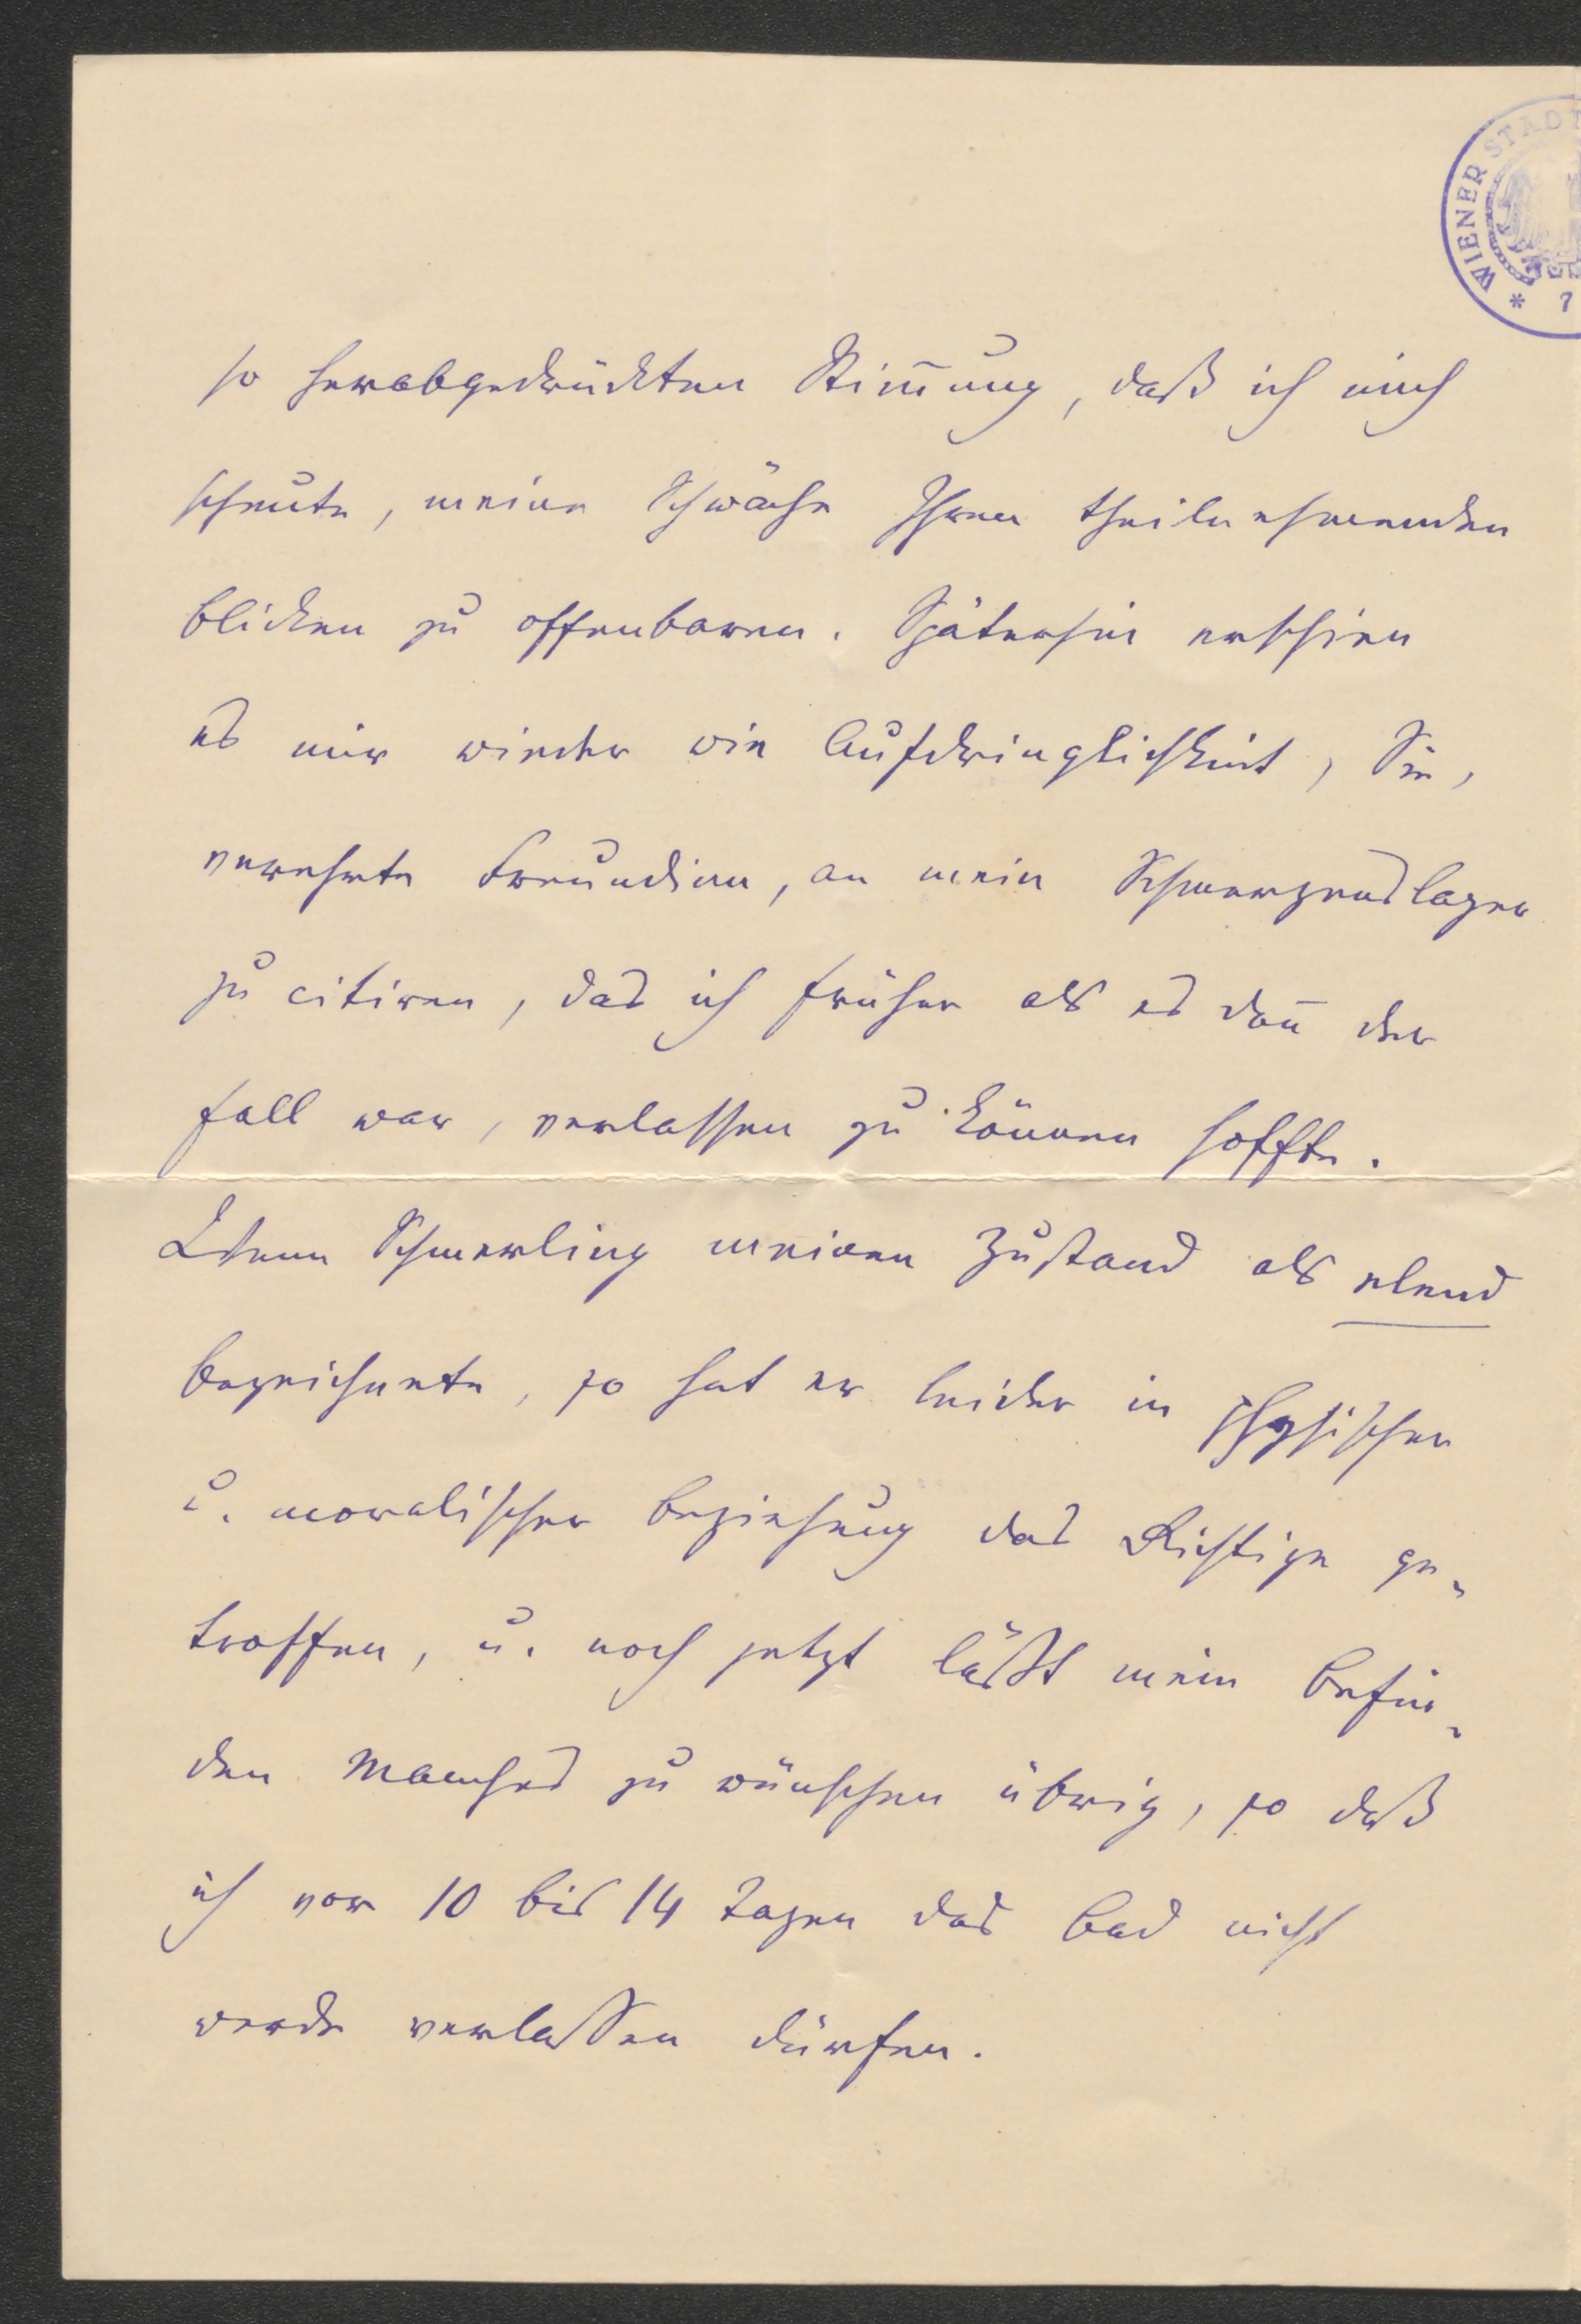 WIENER STADT
* 7
so herabgedrückten Stim̄ung, daß ich mich
scheute, meine Schwäche Ihren theilnehmenden
Blicken zu offenbaren. Späterhin erschien
es mir wieder wie Aufdringlichkeit, Sie,
verehrte Freundinn, an mein Schmerzenslager
zu citiren, das ich früher als es dan̄ der
Fall war, verlassen zu können hoffte.
Wenn Schmerling meinen Zustand als elend
bezeichnete, so hat er leider in physischer
u. moralischer Beziehung das Richtige ge-
troffen, u. noch jetzt läßt mein Befin-
den Manches zu wünschen übrig, so daß
ich vor 10 bis 14 Tagen das Bad nicht
werde verlassen dürfen.